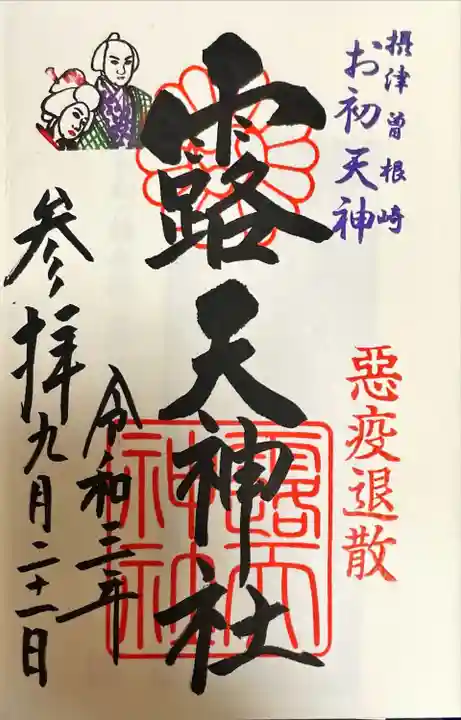 摂津曽根崎
お初天神
惡疫退散
露天神社
露天
神社
令和三年
参拝九月二十一日